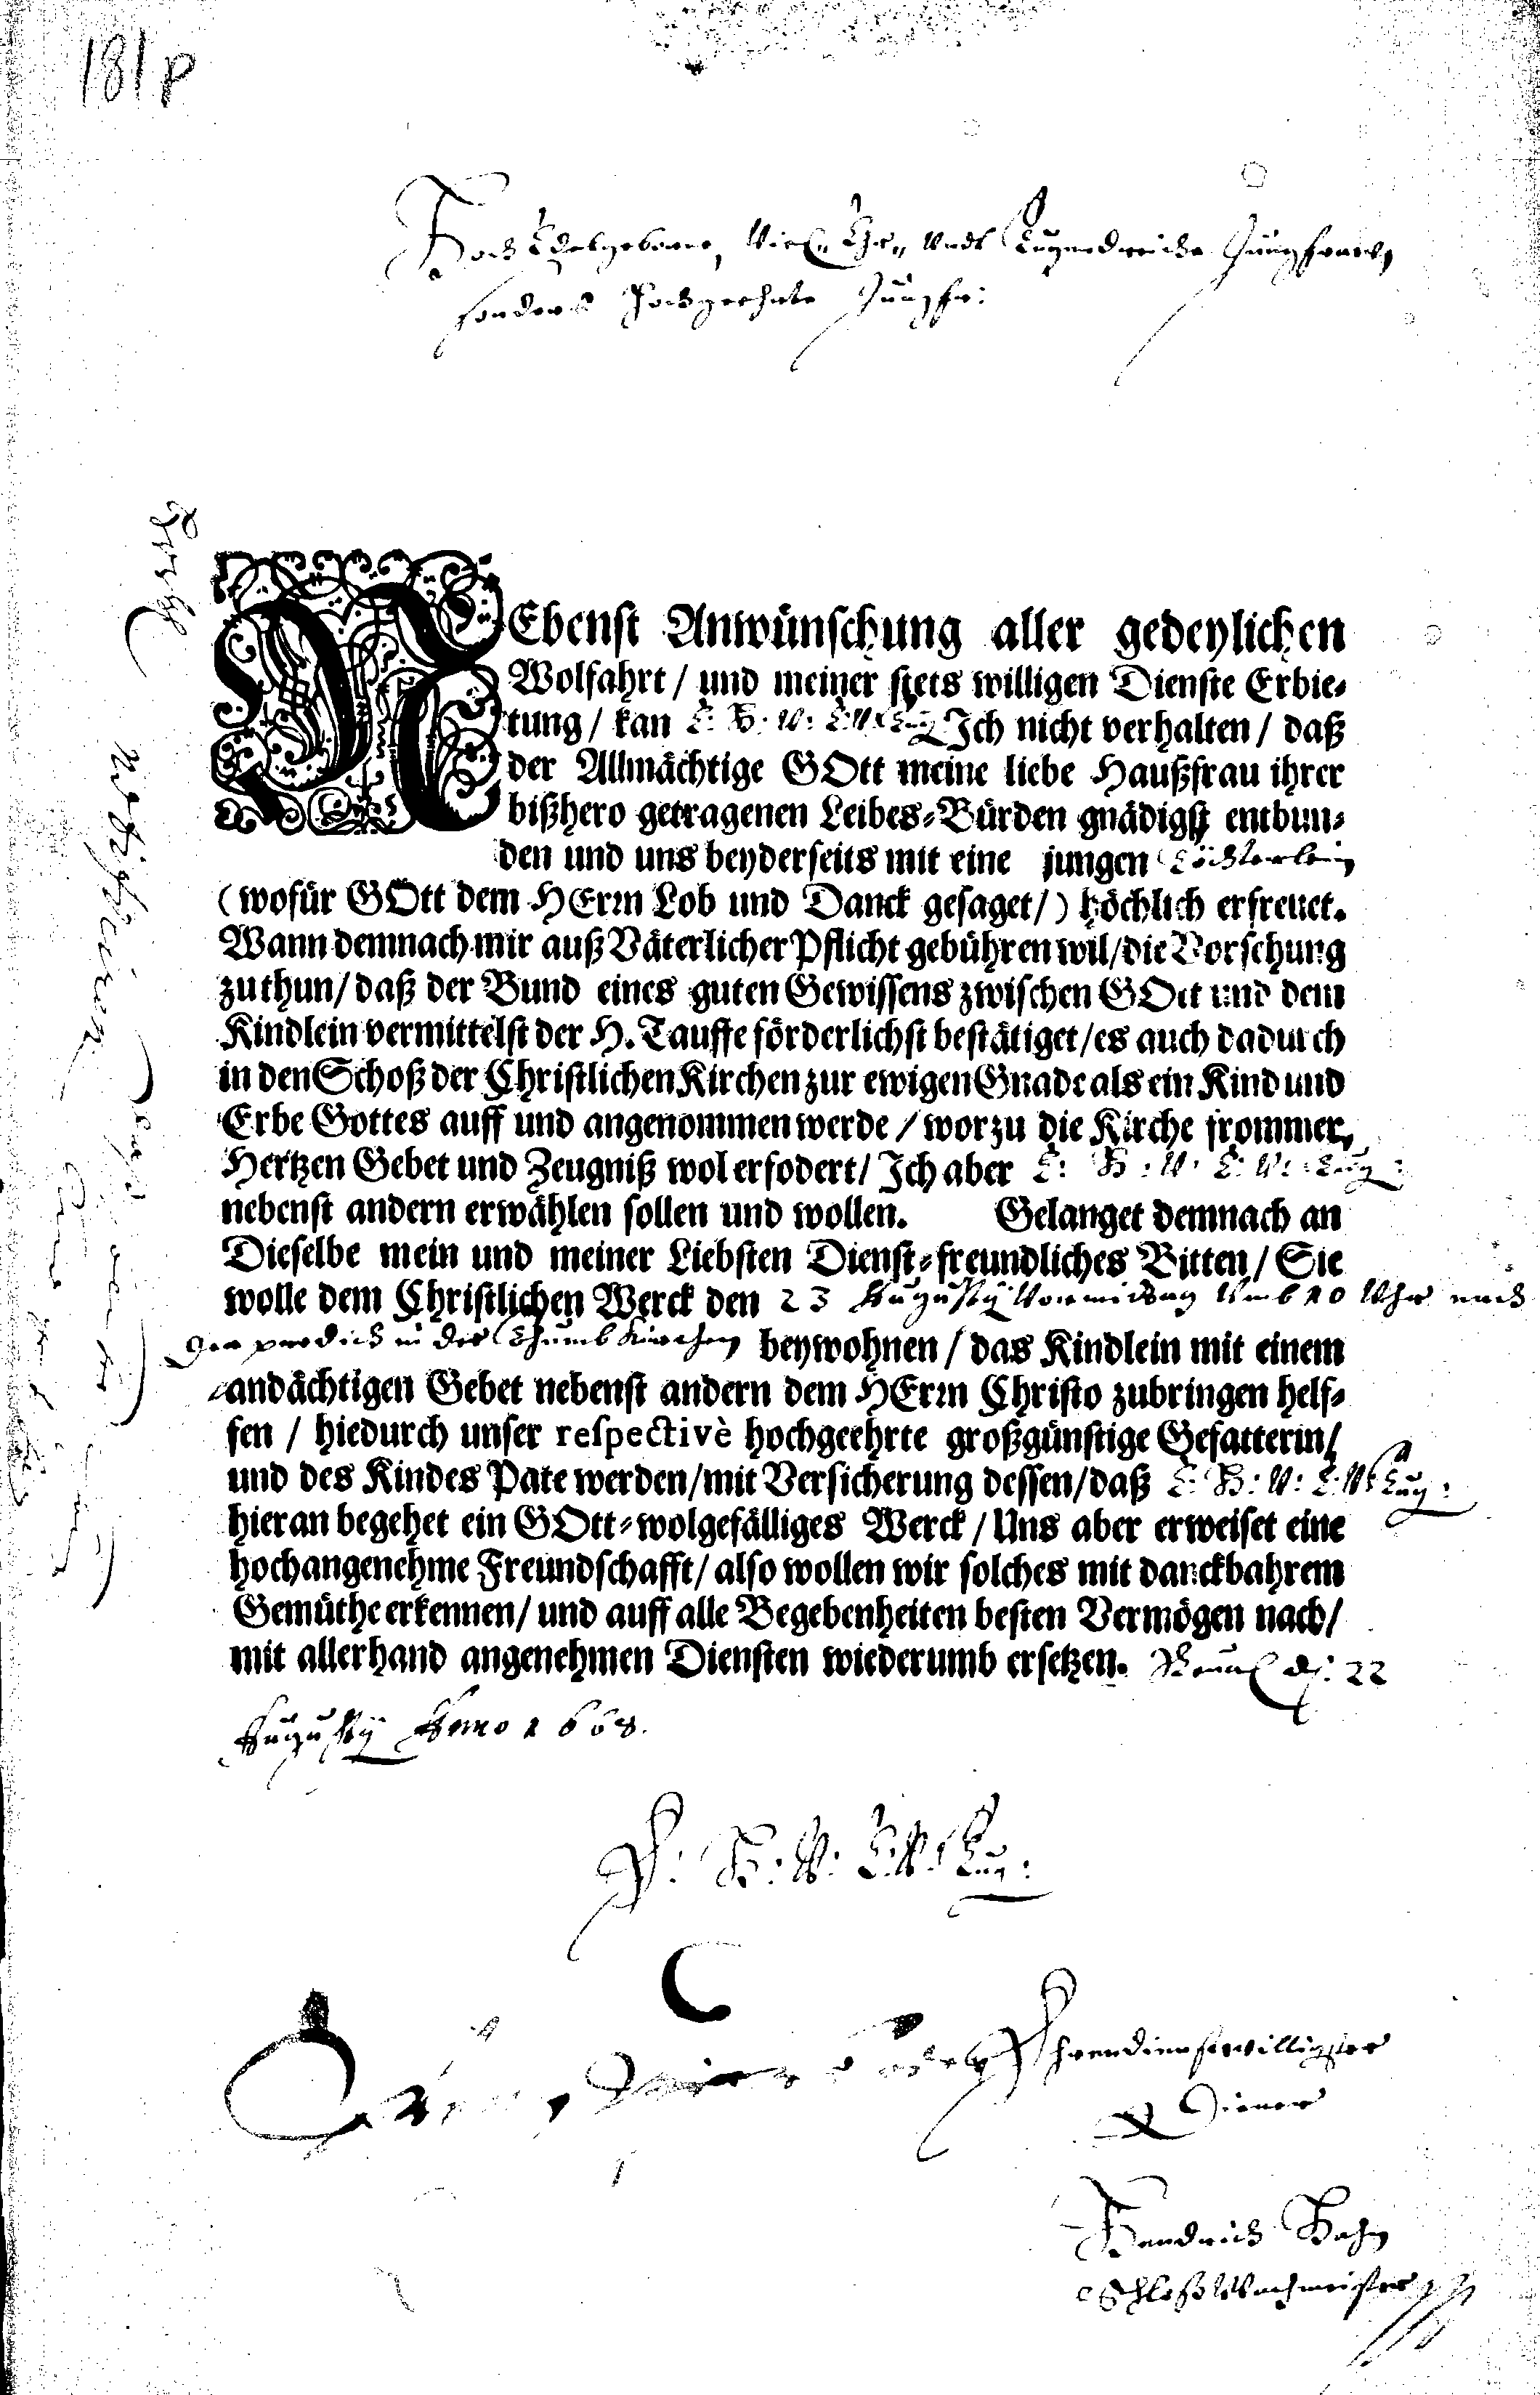 181 p
Hoch Edelgeborne, Viel Ehr- Undt Tugendreiche Jungfraw,
sonders Hochgeehrte Jungfr:
NEbenst Anwünschung aller gedeylichen
Wolfahrt / und meiner stets willigen Dienste Erbie-
tung / kan E: H: V: E: V: Tug Ich nicht verhalten / daß
der Allmächtige GOtt meine liebe Haußfrau ihrer
bißhero getragenen Leibes-Bürden gnädigst entbun-
den und uns beyderseits mit eine jungen Töchterlein
(wofür GOtt dem HErrn Lob und Danck gesaget/) höchlich erfreuet.
Wann demnach mir auß Väterlicher Pflicht gebühren wil/die Vorsehung
zuthun/ daß der Bund eines guten Gewissens zwischen GOtt und dem
Kindlein vermittelst der H. Tauffe förderlichst bestätiget/es auch dadurch
in den Schoß der Christlichen Kirchen zur ewigen Gnade als ein Kind und
Erbe Gottes auff und angenommen werde / worzu die Kirche frommer
Hertzen Gebet und Zeugniß wol erfodert/ Ich aber E: H: V: E: V: Tug:
nebenst andern erwählen sollen und wollen. Gelanget demnach an
Dieselbe mein und meiner Liebsten Dienst-freundliches Bitten / Sie
wolle dem Christlichen Werck den 23 Augusty Vormidtag Umb 10 Uhr nach
der predich in der Thumb Kirchen beywohnen / das Kindlein mit einem
andächtigen Gebet nebenst andern dem HErrn Christo zubringen helf-
fen / hiedurch unser respectivè hochgeehrte großgünstige Gefatterin/
und des Kindes Pate werden/mit Versicherung dessen/daß E: H: V: E: V: Tug:
hieran begehet ein GOtt-wolgefälliges Werck / Uns aber erweiset eine
hochangenehme Freundschafft/ also wollen wir solches mit danckbahrem
Gemüthe erkennen/ und auff alle Begebenheiten besten Vermögen nach/
mit allerhand angenehmen Diensten wiederumb ersetzen. Reval d. 22
Augusty Anno 1668.
E: H: V: E: V: Tug:
Ehrendienstwilligster
Diener
Hendrich Hahn
Schloß Wachmeister